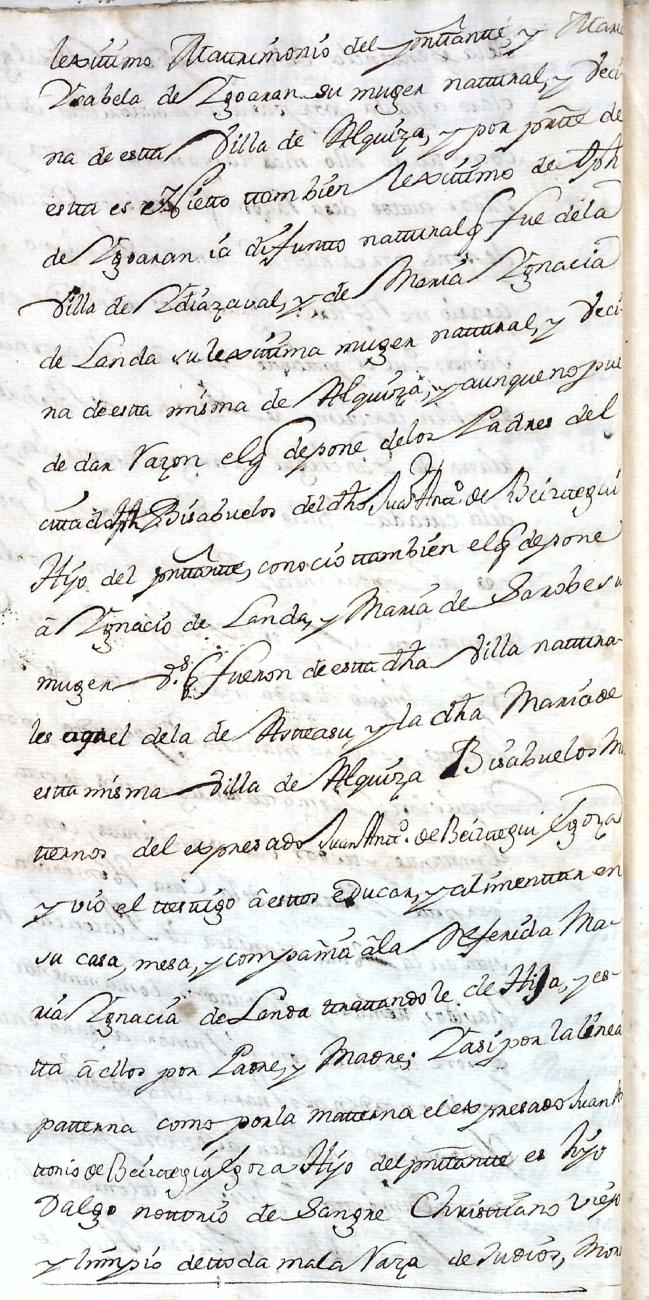 lexitimo Matrimonio del pntante, y Mari
Ysabela de Ygoaran su muger natural, y Veci
na de esta Villa de Alquiza, y por parte de
esta es Nieto tambien lexitimo de Jph
de Ygoaran ia difunto natural q fue dela
Villa de Ydiazaval, y de Maria Ygnacia
de Landa su lexitima muger natural, y Veci
na de esta misma de Alquiza; y aunque no pue
de dar Razon el q depone delos Padres del
citado Jph Bisabuelos del dho Juan Anto. de Beiztegui
Hijo del pntante, conocio tambien el q depone
â Ygnacio de Landa, y Maria de Sarobe su
muger q fueron de esta dha Villa natura
les aquel dela de Asteasu, y la dha Maria de
esta misma Villa de Alquiza Bisabuelos Ma
ternos del expresado Juan Anto. de Beiztegui Ygoza
y vio el testigo â estos educar, y alimentar en
su casa, mesa, y compañia âla Referida Ma-
ria Ygnacia de Landa tratandole de Hija, y es-
ta â ellos por Padre, y Madre; Y asi por la linea
paterna como por la materna el expresado Juan An
tonio de Beiztegui Ygoza Hijo del pntante es Hijo
Dalgo notorio de Sangre Christiano viejo
y limpio de toda mala Raza de Judios, Moro